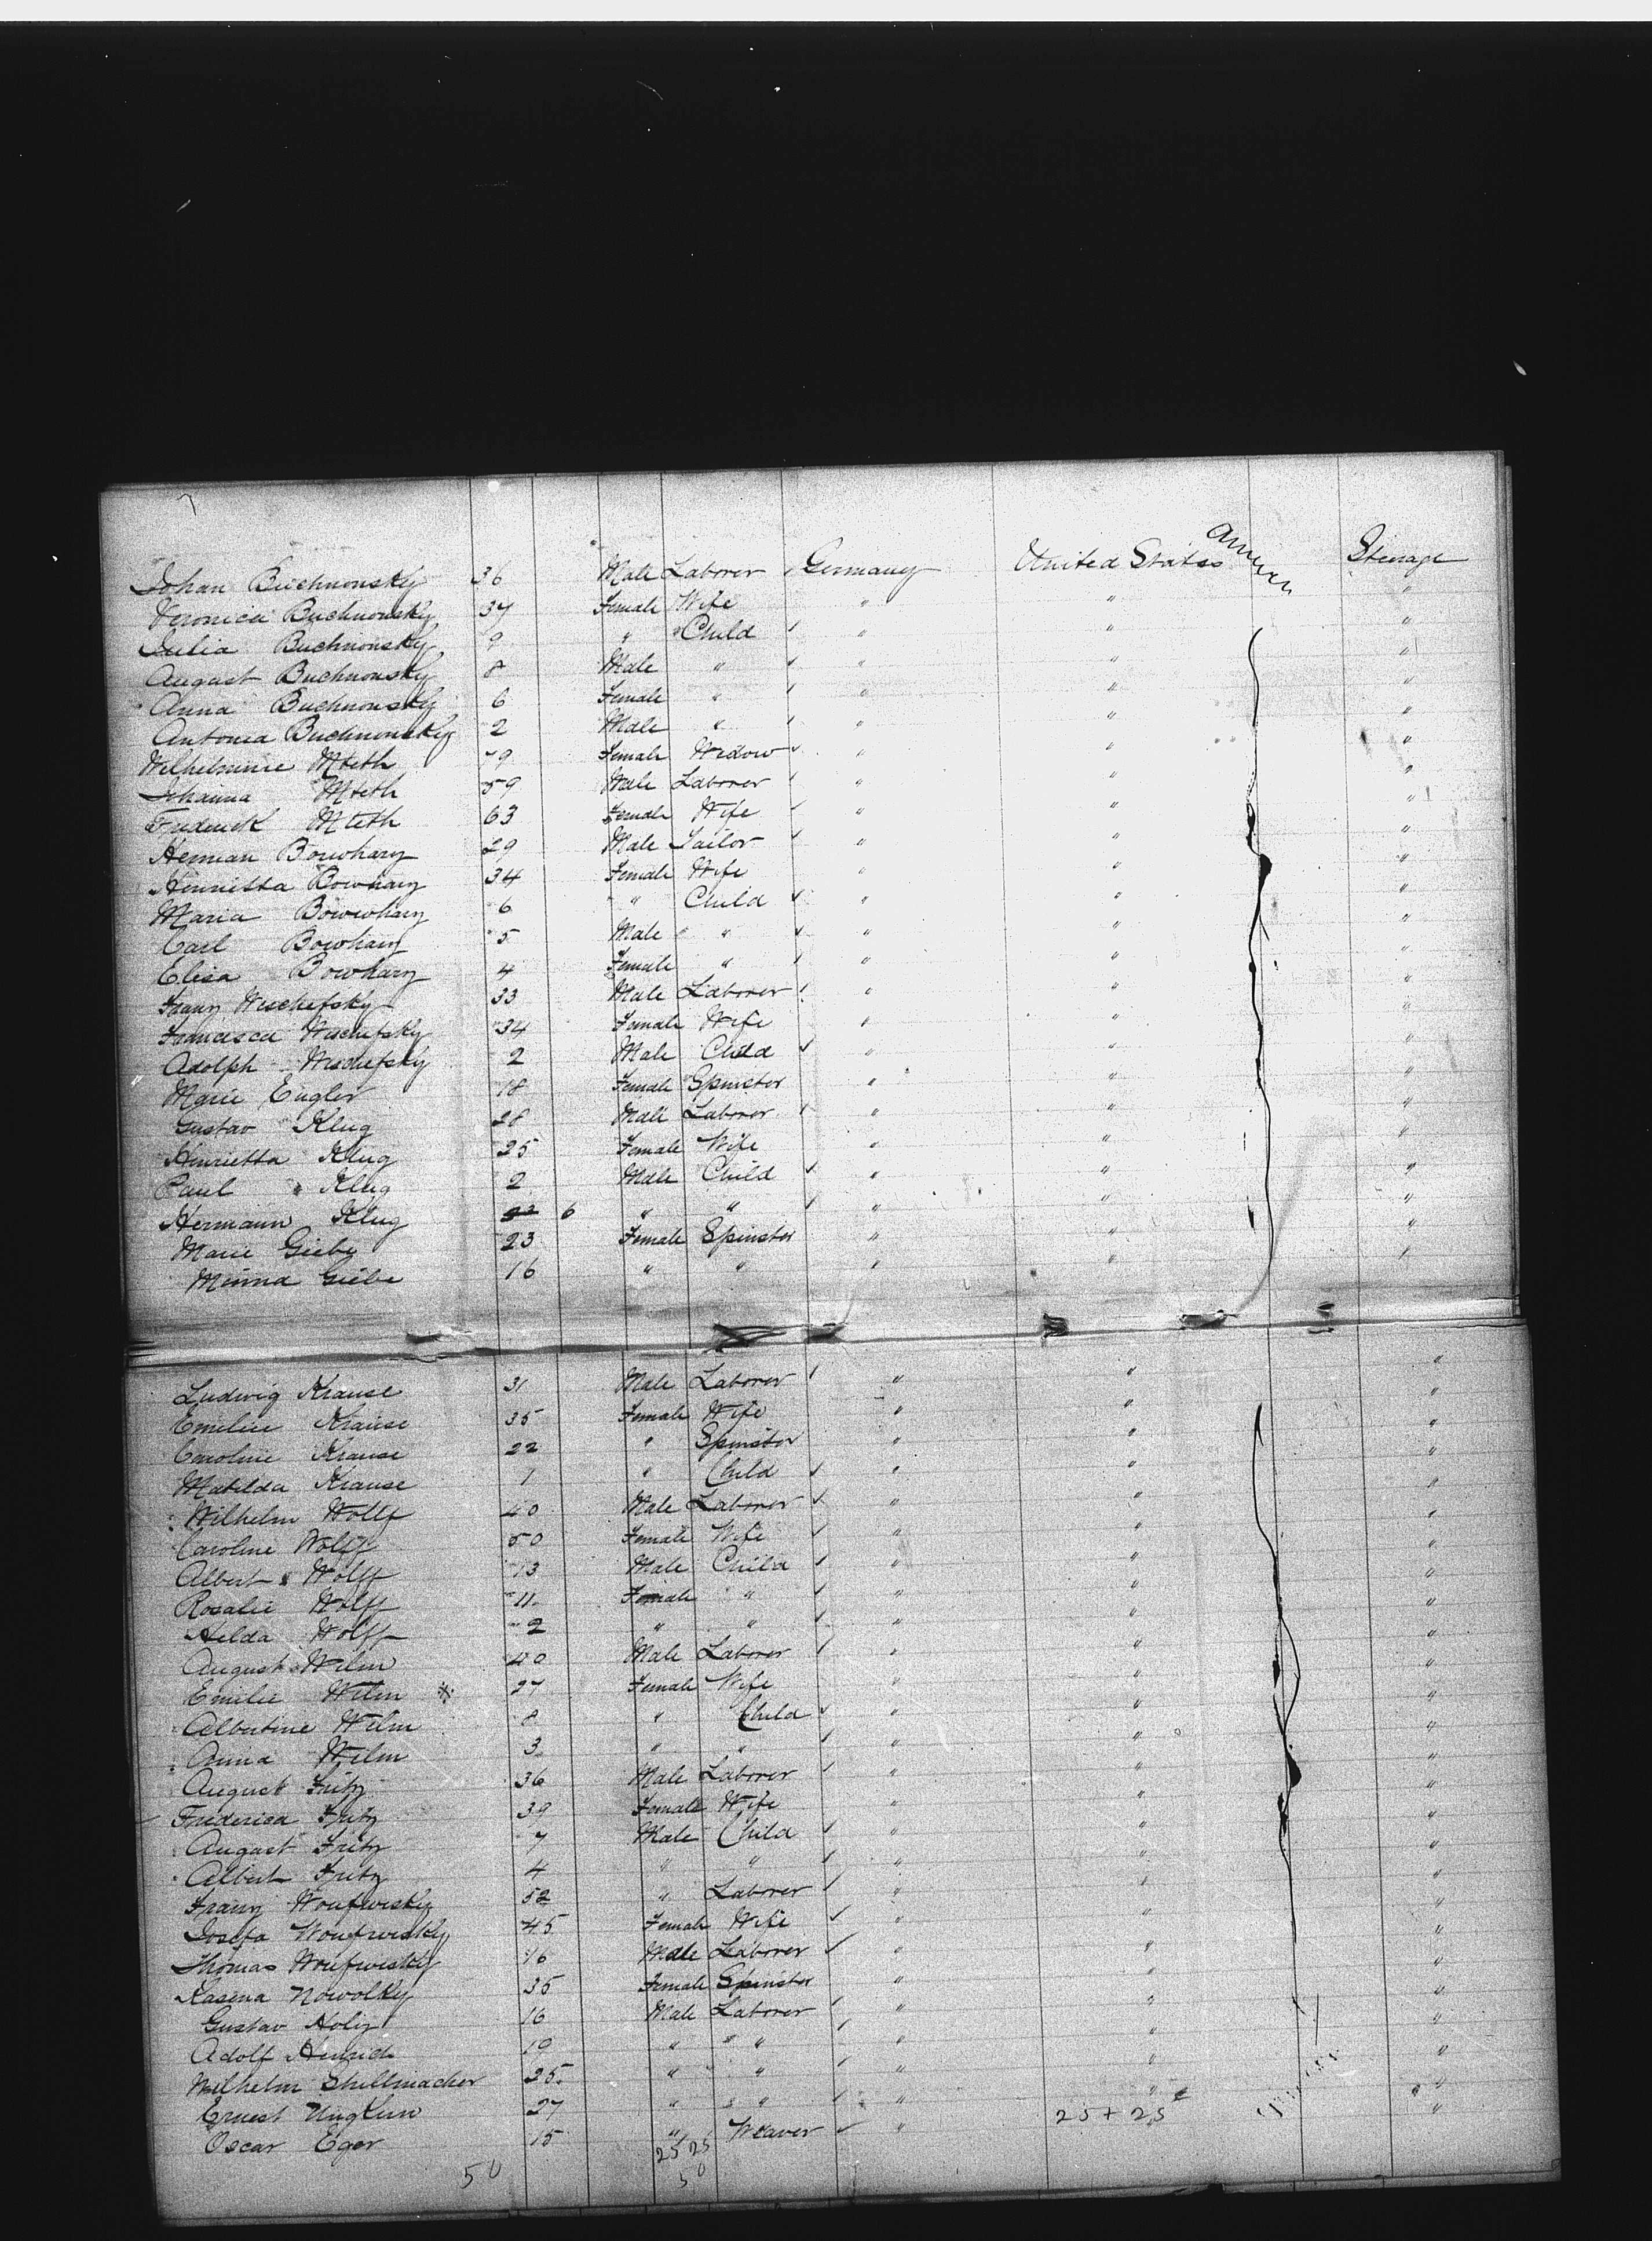 7
Johan Buchnonsky 36 Male Laborer Germany United States Steerage
Veronica Buchnonsky 37 Female Wife " " "
Julia Buchnonsky 9 " Child " " "
August Buchnonsky 8 Male " " " "
Anna Buchnonsky 6 Female " " " "
Antonia Buchnonsky 2 Male " " " "
Wilhelmine Mteth 79 Female Widow " " "
Johanna Mteth 59 Male Laborer " " "
Frederick Mteth 63 Female Wife " " "
Herman Bowharz 29 Male Tailor " " "
Henrietta Bowharz 34 Female Wife " " "
Maria Bowwharz 6 " Child " " "
Carl Bowharz 5 Male " " " "
Elisa Bowharz 4 Female " " " "
Franz Wischefsky 33 Male Laborer " " "
Francisca Wischefsky 34 Female Wife " " "
Adolph Wischefsky 2 Male Child " " "
Marie Engler 18 Female Spinster " " "
Gustav Klug 28 Male Laborer " " "
Henrietta Klug 25 Female Wife " " "
Paul Klug 2 Male Child " " "
Hermann Klug 6 " " " " "
Marie Giebe 23 Female Spinster " " "
Minna Giebe 16 " " " " "
Ludwig Krause 31 Male Laborer " " "
Emilie Krause 35 Female Wife " " "
Caroline Krause 22 " Spinster " " "
Matilda Krause 1 " Child " " "
Wilhelm Wolff 40 Male Laborer " " "
Caroline Wolff 50 Female Wife " " "
Albert Wolff 13 Male Child " " "
Rosalie Wolff 11 Female " " " "
Helda Wolff 2 " " " " "
August Wilm 40 Male Laborer " " "
Emilie Wilm 27 Female Wife " " "
Albertine Wilm 8 " Child " " "
Anna Wilm 3 " " " " "
August Fritz 36 Male Laborer " " "
Frederica Fritz 39 Female Wife " " "
August Fritz 7 Male Child " " "
Albert Fritz 4 " " " " "
Franz Woufwisky 52 " Laborer " " "
Josefa Woufwisky 45 Female Wife " " "
Thomas Woufwisky 16 Male Laborer " " "
Kasena Nowolky 35 Female Spinster " " "
Gustav Holz 16 Male Laborer " " "
Adolf Heinrich 19 " " " " "
Wilhelm Shellmacher 25 " " " " "
Ernest Ungkun 27 " " " " "
Oscar Eger 15 " Weaver " 25 + 25 "
25 25
50 50